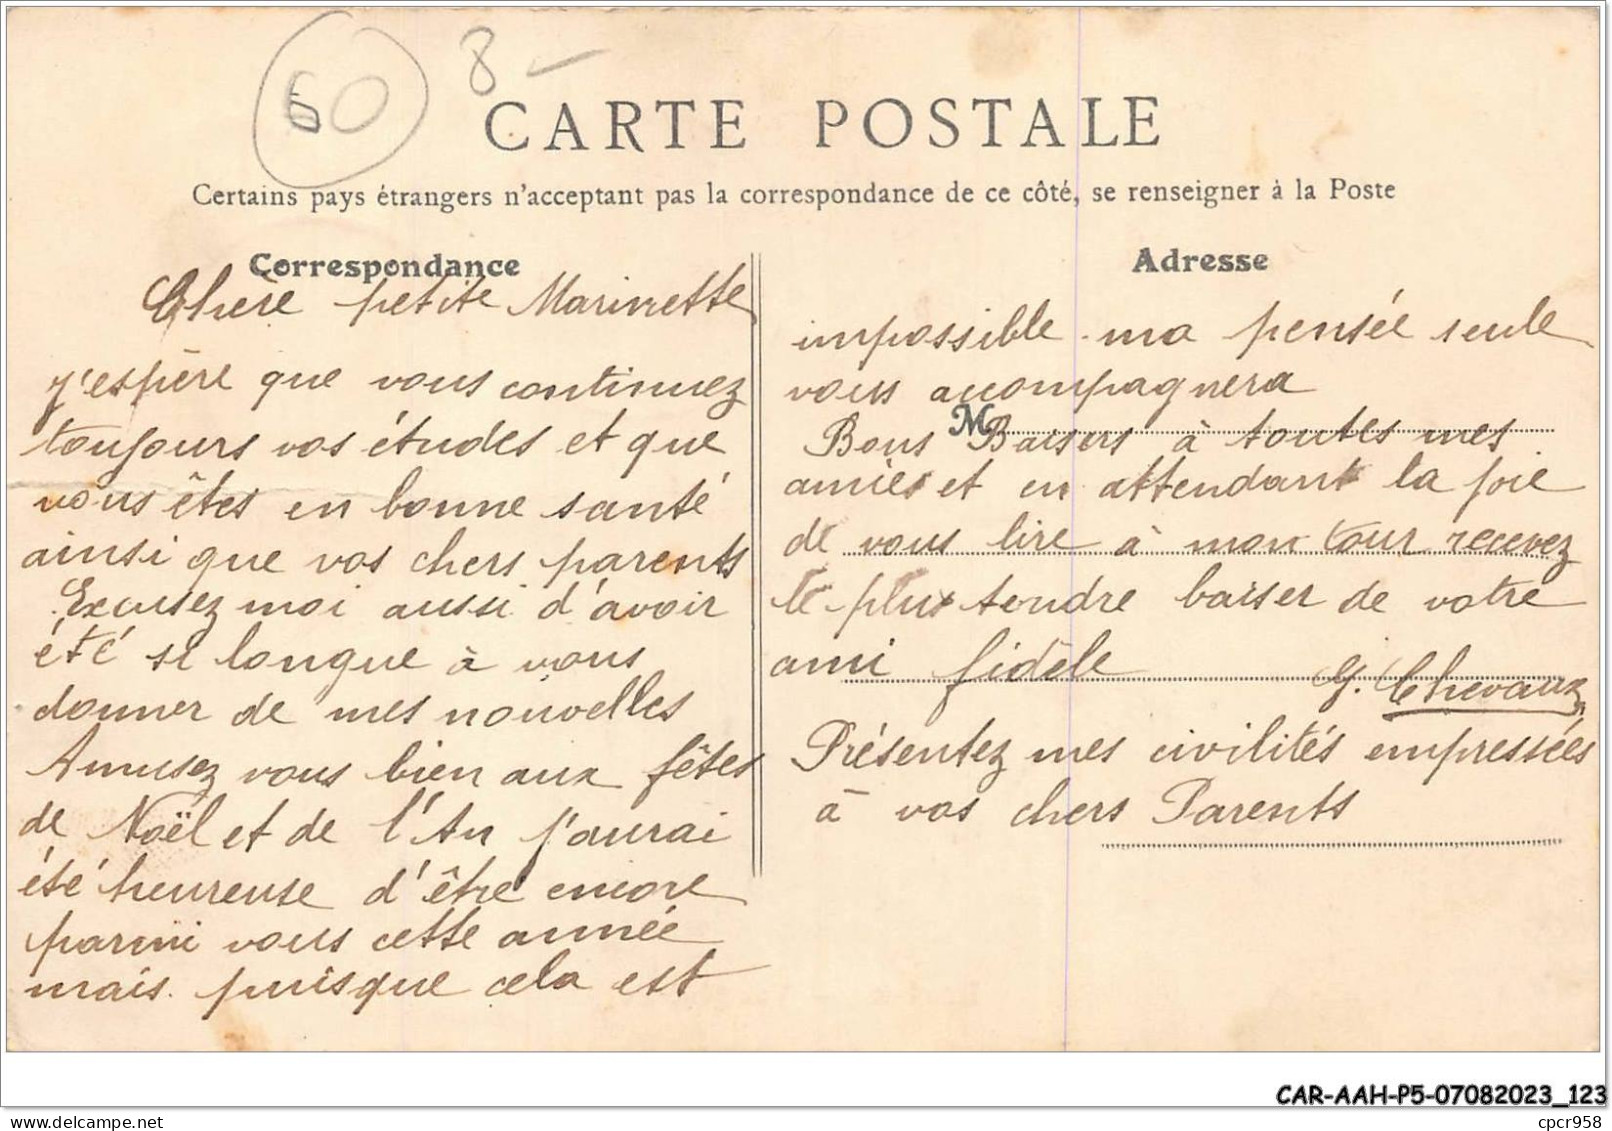 60
8 -
CARTE POSTALE
Certains pays étrangers n'acceptant pas la correspondance de ce côté, se renseigner à la Poste
Correspondance
Chère petite Marinette
j'espère que vous continuez
toujours vos études et que
vous êtes en bonne santé
ainsi que vos chers parents
Excusez moi aussi d'avoir
été si longue à vous
donner de mes nouvelles
Amusez vous bien aux fêtes
de Noël et de l'An j'aurai
été heureuse d'être encore
parmi vous cette année
mais puisque cela est
Adresse
impossible ma pensée seule
vous accompagnera
M
Bons Baisers à toutes mes
amies et en attendant la joie
de vous lire à mon tour recevez
le plus tendre baiser de votre
ami fidèle G. Chevaux
Présentez mes civilités empressées
à vos chers Parents
CAR-AAH-P5-07082023_123
cpcr958